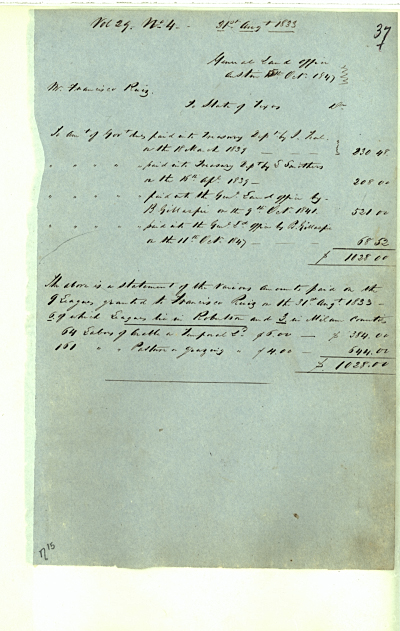 Vol 29. No 4. 31st Augt 1833
37
General Land Office
Austin Oct. 1847
Mr. Francisco Ruiz.
To State of Texas Dr.
To Amt of Govt dues paid into Treasury Dept by
on the 18 March 1839 — 230.48
" " " " paid into Treasury Dept by Smithers
on the 16th Apl. 1839 — 208.00
" " " " paid into the Genl Land Office by
B Gillaspie on the 9th Oct 1841. 531.00
" " " " paid into the Genl Ld Office by B. Gillaspie
on the 11th Oct 1847 — 68.52
$ 1038.00
The above is a statement of the various amounts paid on the
9 Leagues, granted to Francisco Ruiz on the 31st Augt 1833 —
6 of which Leagues lie in Robertson and 3 in Milam Counties
64 Labors of Arable or Temporal Ld $6.00 — $ 384.00
161 " " Pasture or Grazing " $4.00 — 644.00
$ 1028.00